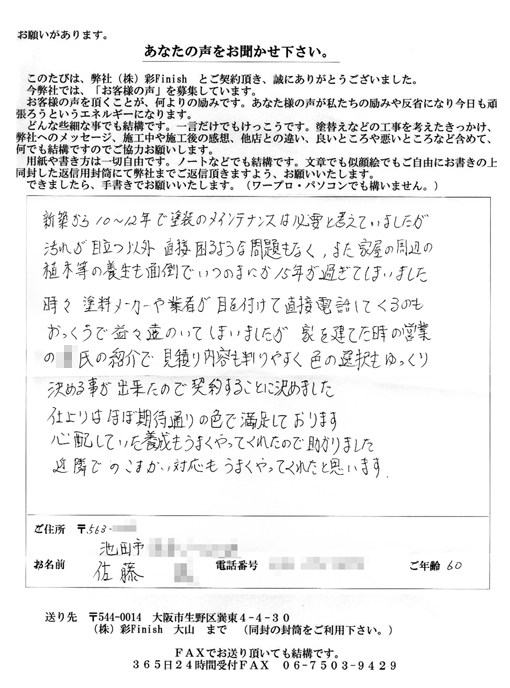 お願いがあります。
あなたの声をお聞かせ下さい。
このたびは、弊社（株）彩Finish とご契約頂き、誠にありがとうございました。
今弊社では、「お客様の声」を募集しています。
お客様の声を頂くことが、何よりの励みです。あなた様の声が私たちの励みや反省になり今日も頑
張ろうというエネルギーになります。
どんな些細な事でも結構です。一言だけでもけっこうです。塗替えなどの工事を考えたきっかけ、
弊社へのメッセージ、施工中や施工後の感想、他店との違い、良いところや悪いところなど含めて、
何でも結構ですのでご協力お願いします。
用紙や書き方は一切自由です。ノートなどでも結構です。文章でも似顔絵でもご自由にお書きの上
同封した返信用封筒にて弊社までご返信頂きますよう、お願いいたします。
できましたら、手書きでお願いいたします。（ワープロ・パソコンでも構いません。）
新築から10～12年で塗装のメインテナンスは必要と考えていましたが
汚れが目立つ以外 直接困るような問題もなく、また家屋の周辺の
植木等の養生も面倒でいつのまにか15年が過ぎてしまいました
時々 塗料メーカーや業者が目を付けて直接電話してくるのも
おっくうで益々遠のいてしまいましたが 家を建てた時の営業
の 氏の紹介で 見積り内容も判りやすく 色の選択もゆっくり
決める事が出来たので契約することに決めました
仕上りはほぼ期待通りの色で満足しております
心配していた養成もうまくやってくれたので助かりました
近隣でのこまかい対応も うまくやってくれたと思います.
ご住所 〒563-
池田市
お名前 佐藤 電話番号 ご年齢 60
送り先 〒544-0014 大阪市生野区巽東4-4-30
（株）彩Finish 大山 まで （同封の封筒をご利用下さい。）
FAXでお送り頂いても結構です。
365日24時間受付FAX 06-7503-9429